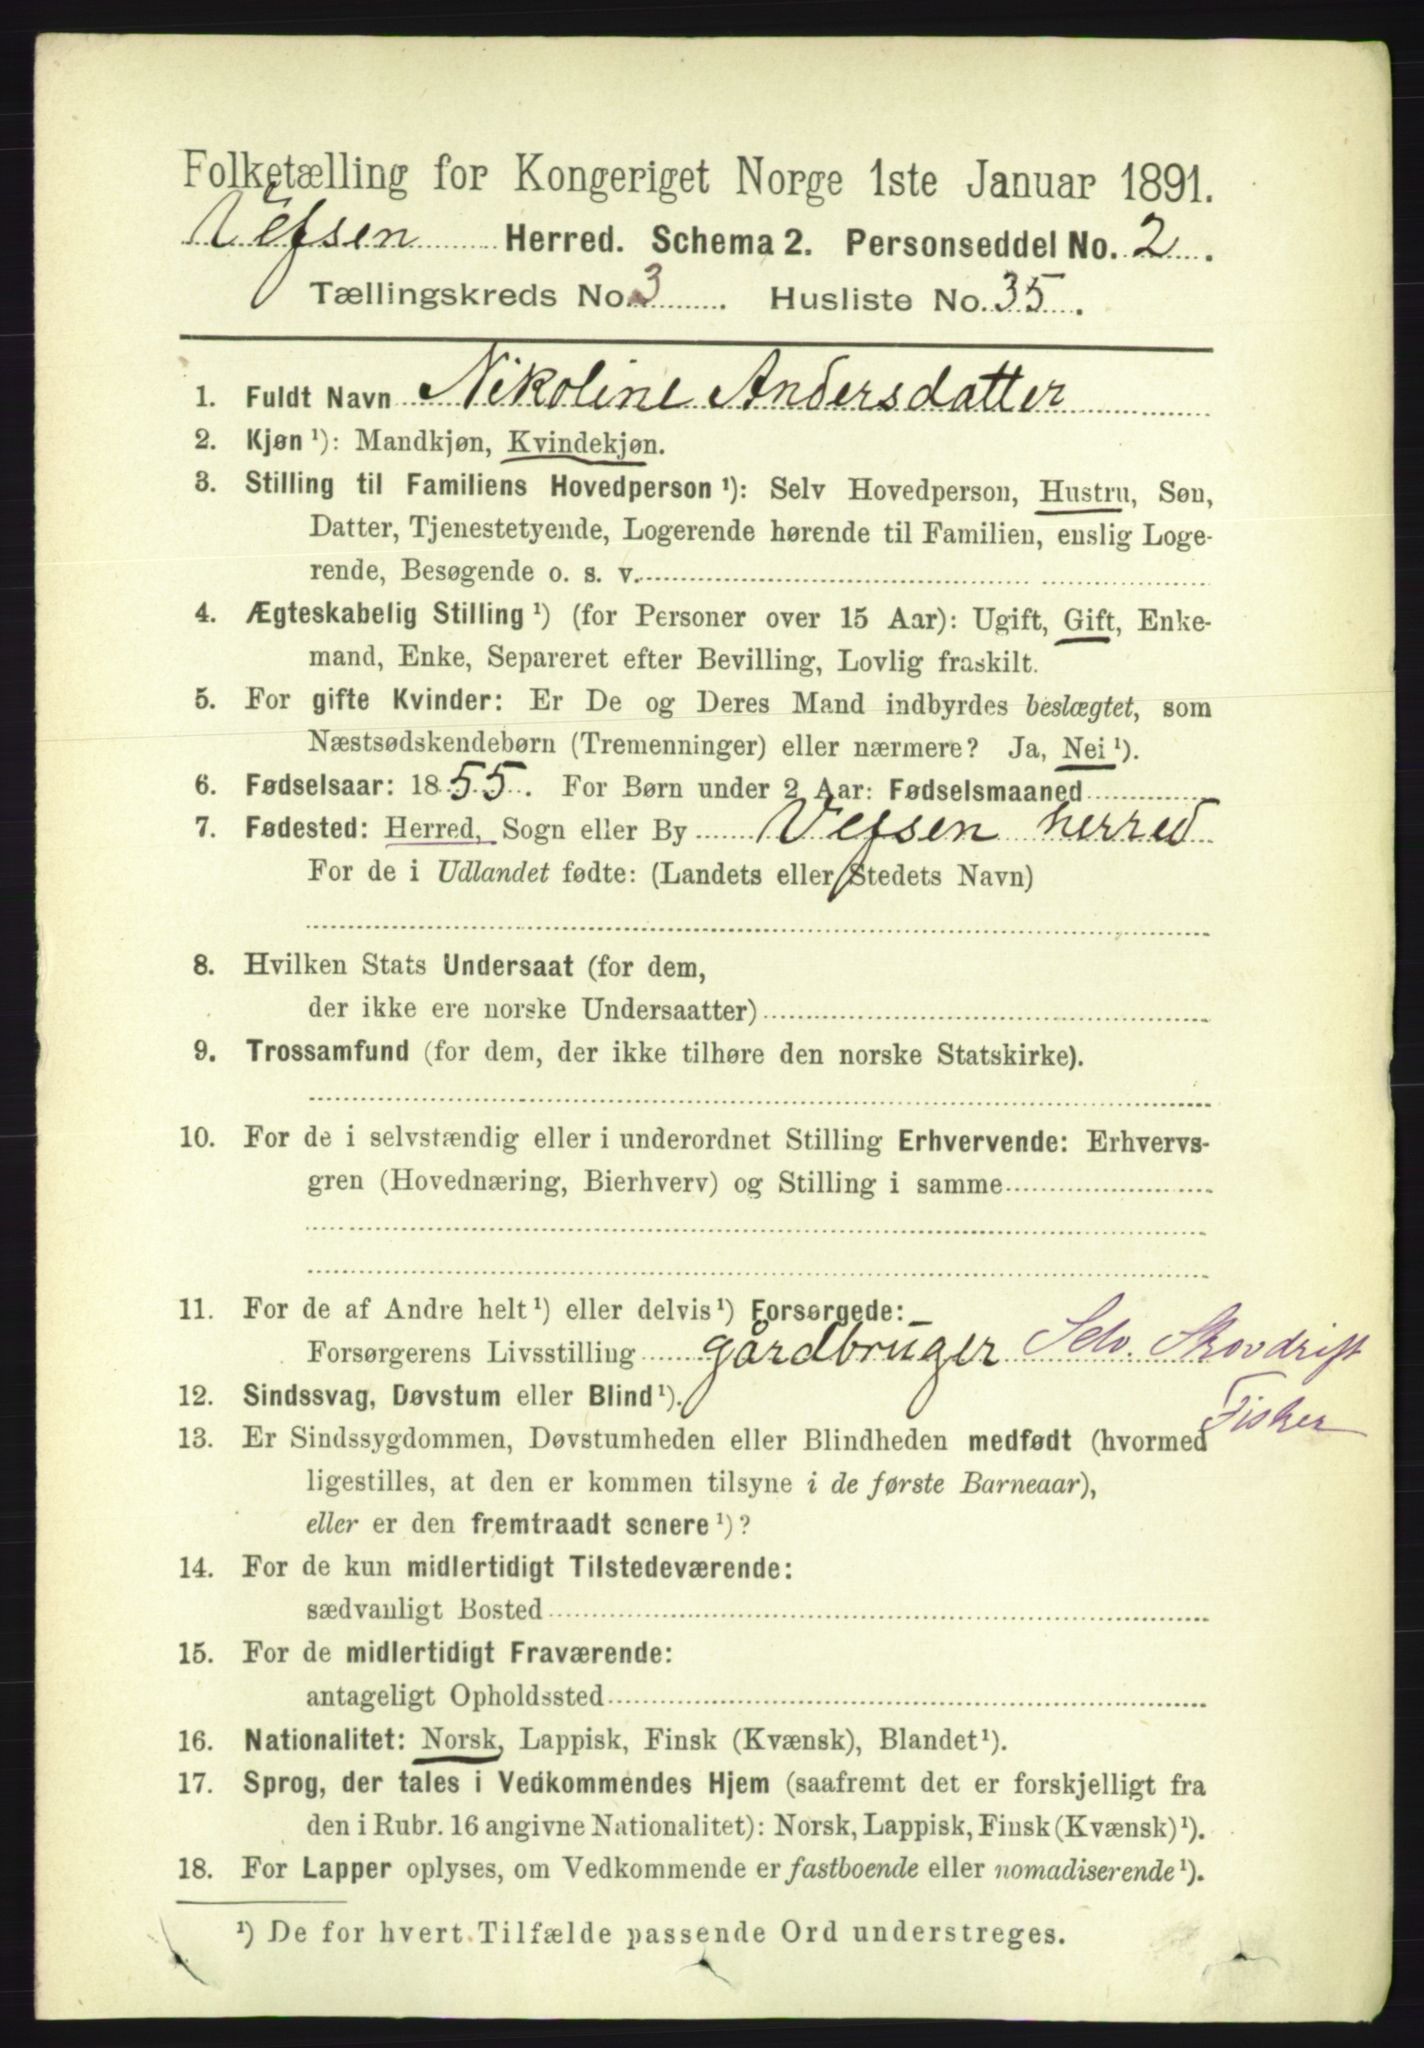 Folketælling for Kongeriget Norge 1ste Januar 1891.
Vefsen Herred. Schema 2. Personseddel No. 2.
Tællingskreds No. 3. Husliste No. 35.
1. Fuldt Navn Nikoline Andersdatter
2. Kjøn ¹): Mandkjøn, Kvindekjøn.
3. Stilling til Familiens Hovedperson ¹): Selv Hovedperson, Hustru, Søn,
Datter, Tjenestetyende, Logerende hørende til Familien, enslig Loge-
rende, Besøgende o. s. v.
4. Ægteskabelig Stilling ¹) (for Personer over 15 Aar): Ugift, Gift, Enke-
mand, Enke, Separeret efter Bevilling, Lovlig fraskilt.
5. For gifte Kvinder: Er De og Deres Mand indbyrdes beslægtet, som
Næstsødskendebørn (Tremenninger) eller nærmere? Ja, Nei ¹).
6. Fødselsaar: 1855. For Børn under 2 Aar: Fødselsmaaned
7. Fødested: Herred, Sogn eller By Vefsen herred
For de i Udlandet fødte: (Landets eller Stedets Navn)
8. Hvilken Stats Undersaat (for dem,
der ikke ere norske Undersaatter)
9. Trossamfund (for dem, der ikke tilhøre den norske Statskirke).
10. For de i selvstændig eller i underordnet Stilling Erhvervende: Erhvervs-
gren (Hovednæring, Bierhverv) og Stilling i samme
11. For de af Andre helt ¹) eller delvis ¹) Forsørgede:
Forsørgerens Livsstilling gårdbruger Selv. Skovdrift
Fisker
12. Sindssvag, Døvstum eller Blind ¹).
13. Er Sindssygdommen, Døvstumheden eller Blindheden medfødt (hvormed
ligestilles, at den er kommen tilsyne i de første Barneaar),
eller er den fremtraadt senere ¹)?
14. For de kun midlertidigt Tilstedeværende:
sædvanligt Bosted
15. For de midlertidigt Fraværende:
antageligt Opholdssted
16. Nationalitet: Norsk, Lappisk, Finsk (Kvænsk), Blandet ¹).
17. Sprog, der tales i Vedkommendes Hjem (saafremt det er forskjelligt fra
den i Rubr. 16 angivne Nationalitet): Norsk, Lappisk, Finsk (Kvænsk) ¹).
18. For Lapper oplyses, om Vedkommende er fastboende eller nomadiserende ¹).
¹) De for hvert Tilfælde passende Ord understreges.